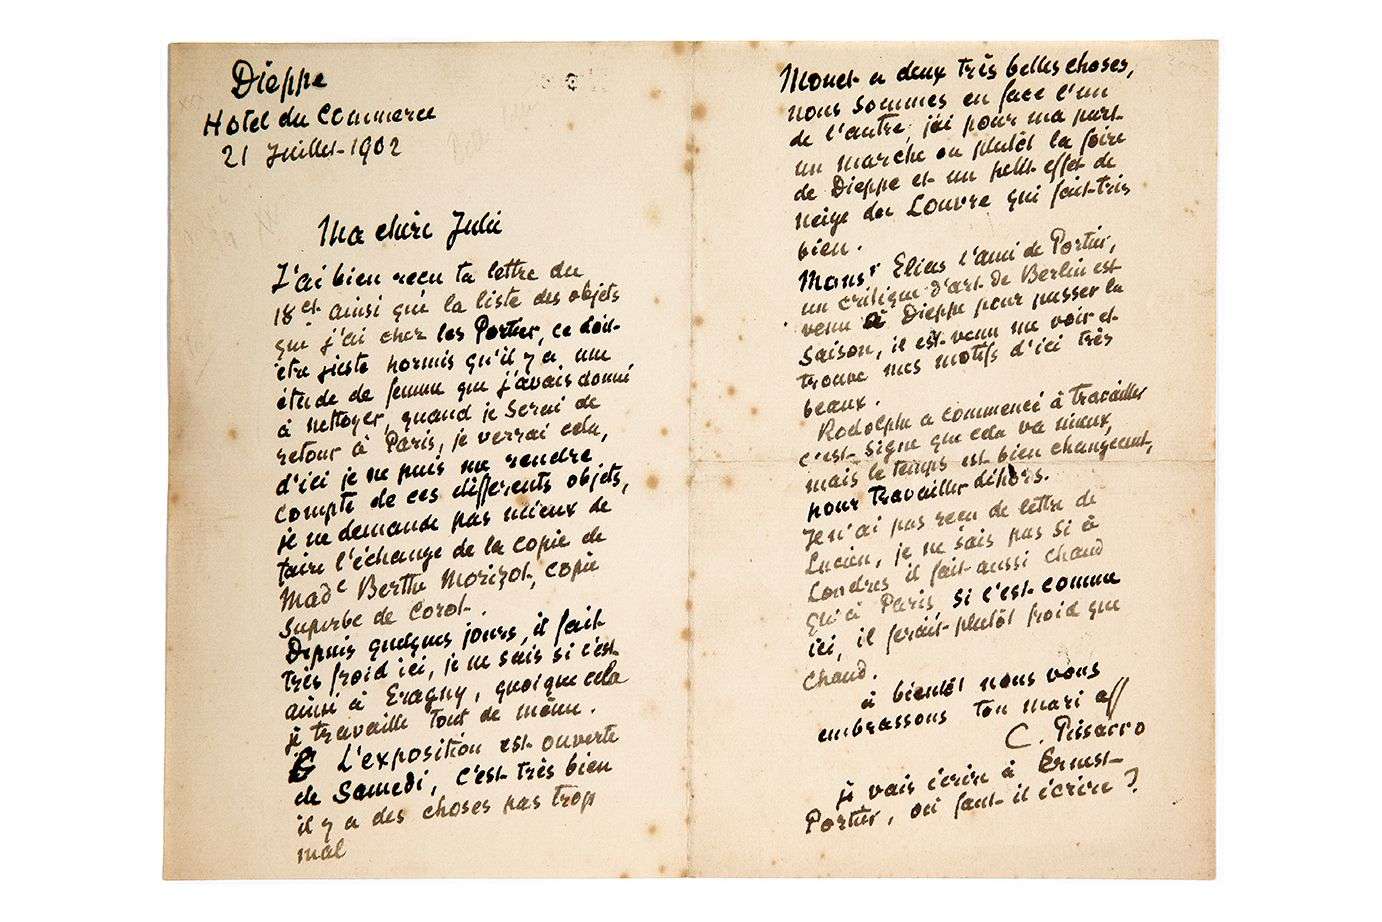 Dieppe
Hotel du Commerce
21 Juillet-1902
Ma chère Julie
J'ai bien reçu ta lettre du
18 et ainsi que la liste des objets
que j'ai chez les Portier, ce doit-
être juste hormis qu'il y a une
étude de femme que j'avais donné
à nettoyer, quand je serai de
retour à Paris, je verrai cela,
d'ici je ne puis me rendre
compte de ces différents objets,
je ne demande pas mieux de
faire l'échange de la copie de
Made Berthe Morizot, copie
superbe de Corot.
Depuis quelques jours, il fait
très froid ici, je ne sais si c'est
ainsi à Eragny, quoique cela
je travaille tout de même.
L'exposition est ouverte
de Samedi, c'est très bien
il y a des choses pas trop
mal
Monet a deux très belles choses,
nous sommes en face l'un
de l'autre, j'ai pour ma part
un marché ou plutôt la foire
de Dieppe et un petit effet de
neige du Louvre qui fait très
bien.
Monsr Elias l'ami de Portier,
un critique d'art de Berlin est
venu à Dieppe pour passer la
saison, il est venu me voir et
trouve mes motifs d'ici très
beaux.
Rodolphe a commencé à travailler
c'est signe que cela va mieux,
mais le temps est bien changeant,
pour travailler déhors.
Je n'ai pas reçu de lettre de
Lucien, je ne sais pas si à
Londres il fait aussi chaud
qu'à Paris, si c'est comme
ici, il ferait plutôt froid que
chaud.
à bientôt nous vous
embrassons ton mari aff
C. Pissarro
je vais écrire à Ernest-
Portier, où faut-il écrire?